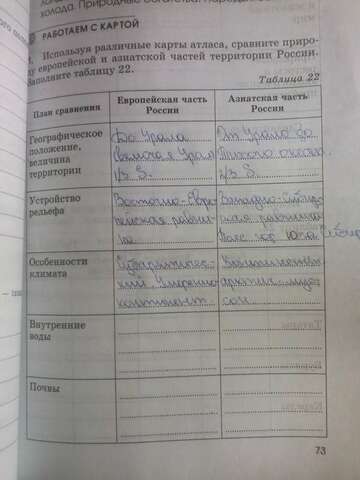 холода. Природные богатства.
РАБОТАЕМ С КАРТОЙ
1. Используя различные карты атласа, сравните приро-
ду европейской и азиатской частей территории России.
Заполните таблицу 22.
Таблица 22
План сравнения
Европейская часть
России
Азиатская часть
России
Географическое
положение,
величина
территории
До Урала
и Урал
1/3 S.
От Урала до
Тихого океана.
2/3 S.
Устройство
рельефа
Восточно-Евро
пейская равни-
на
Западно-Сибир
ская равнина
Пояс гор Юга Сибири
Особенности
климата
Субарктичес-
кий. Умеренно
континент.
мус
сон.
Внутренние
воды
Почвы
73